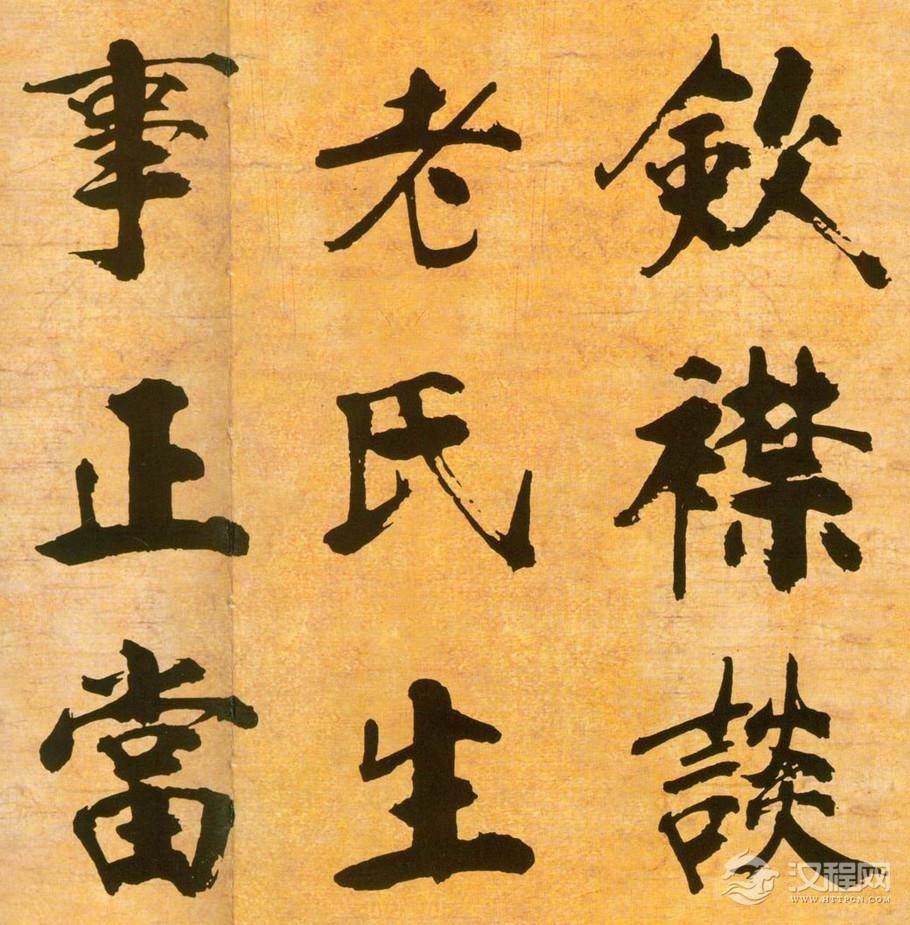 斂襟談
老氏生
事正當
汉程网
WWW.HTTPCN.COM